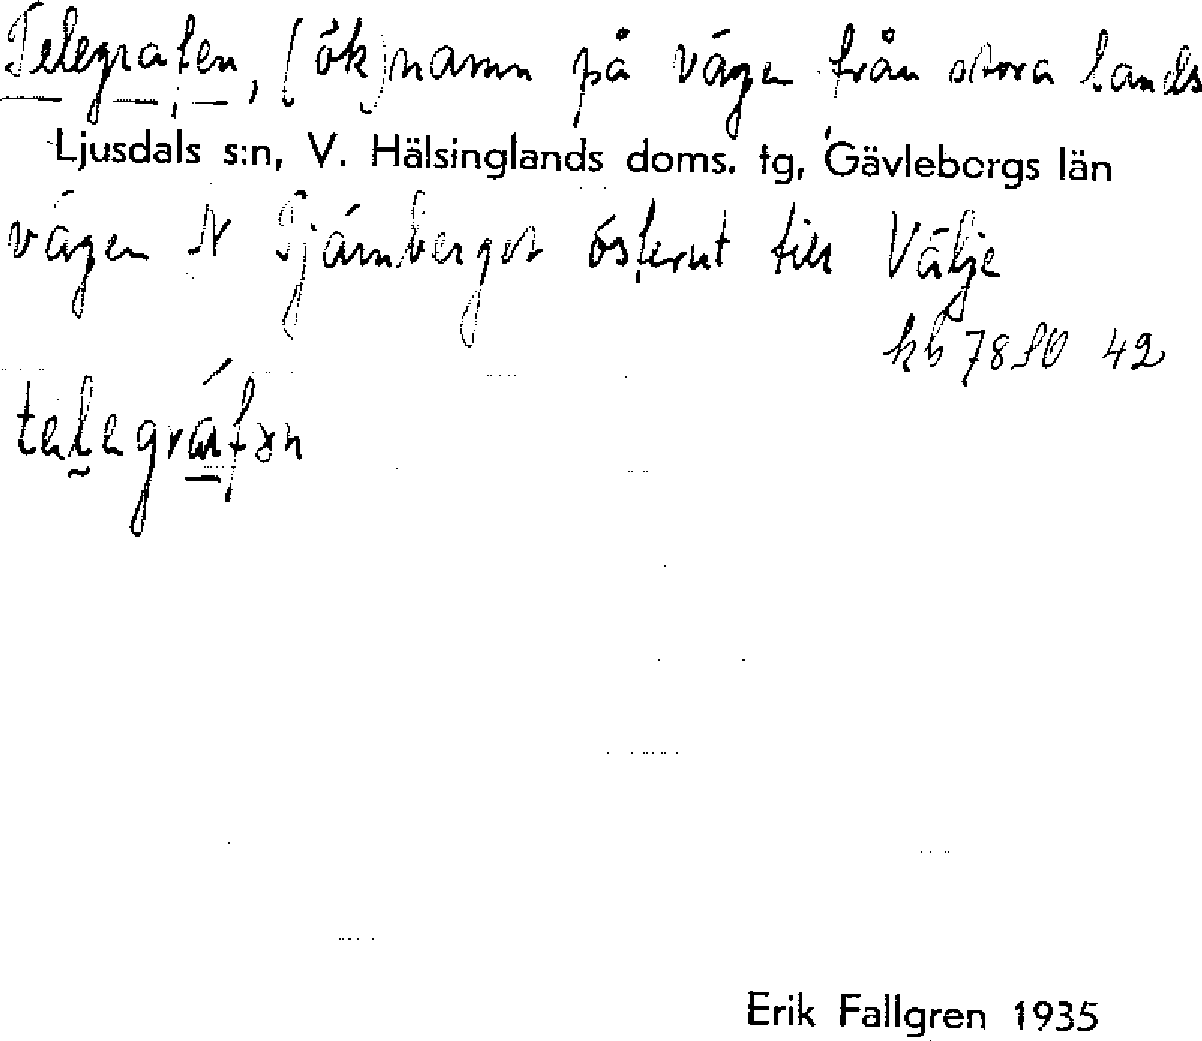 Telegrafen, (ök)namn på vägen från stora lands
Ljusdals s:n, V. Hälsinglands doms. tg, Gävleborgs län
vägen N Tjärnberget österut till Välje
hb 7850 42
telegráfən
Erik Fallgren 1935